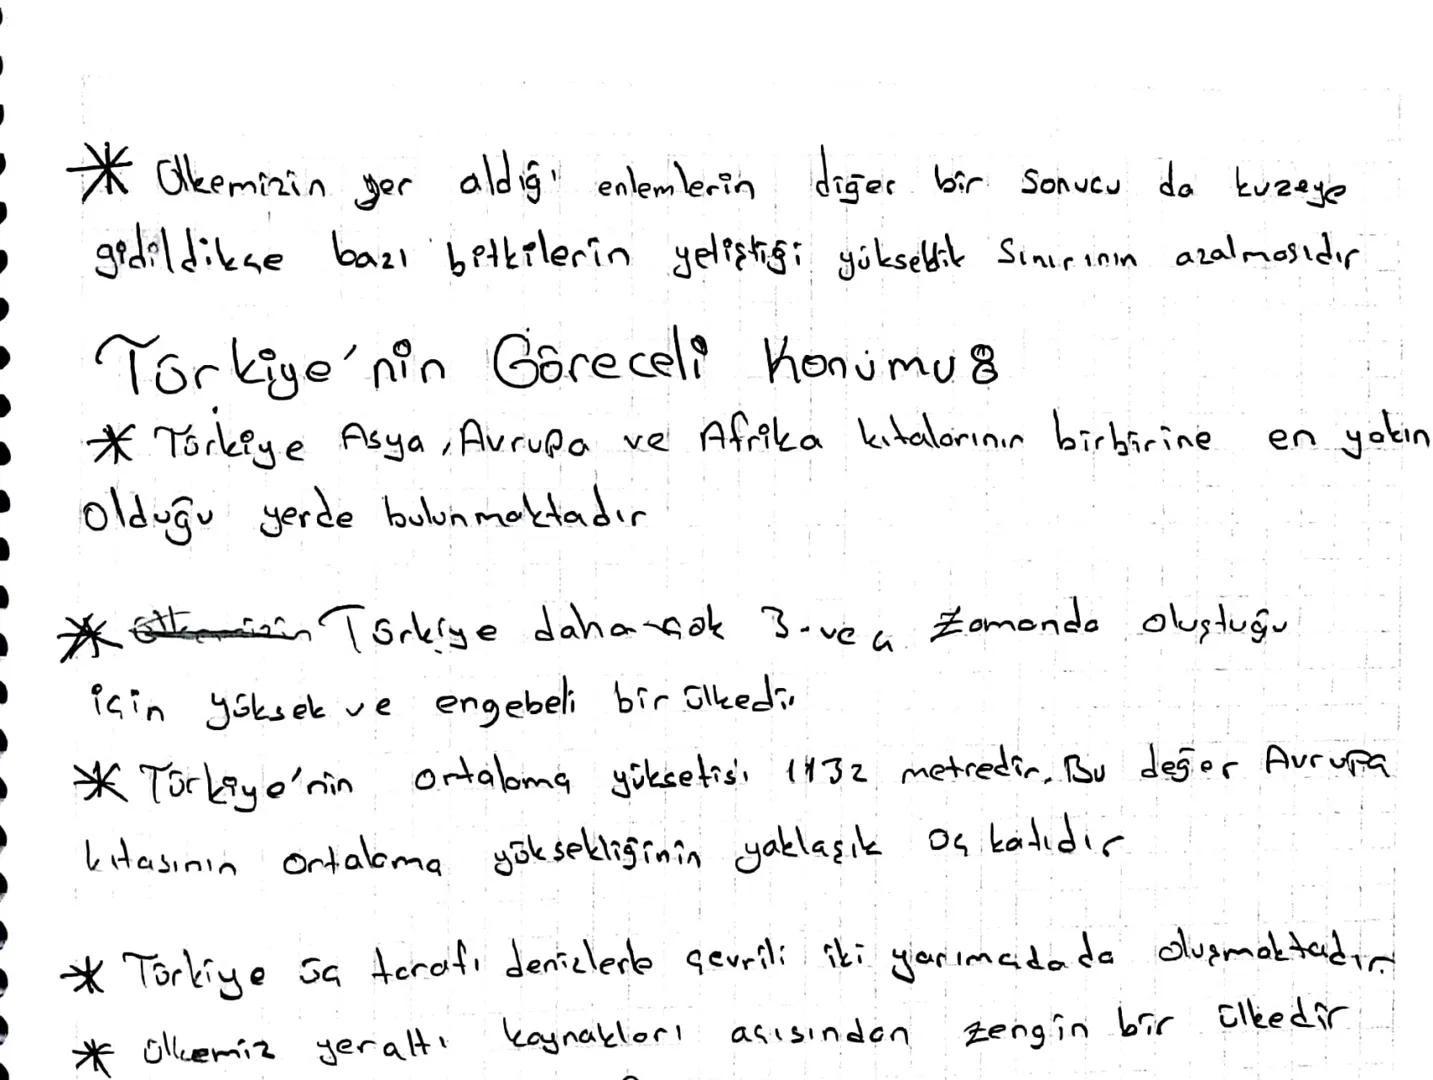 * Ülkemizin yer aldığı enlemlerin diğer bir sonucu da kuzeye
gidildikçe bazı bitkilerin yetiştiği yükseltik sınırının azalmasıdır
Türkiye'nin Göreceli Konumu:
* Türkiye Asya, Avrupa ve Afrika kıtalarının birbirine en yakın
olduğu yerde bulunmaktadır
* Türkiye daha çok 3. ve 4. Zamanda oluştuğu
için yüksek ve engebeli bir ülkedir
* Türkiye'nin ortalama yüksetisi 1132 metredir. Bu değer Avrupa
kıtasının ortalama yüksekliğinin yaklaşık üç katıdır
* Türkiye üç tarafı denizlerle çevrili iki yarımadada oluşmaktadır
* ülkemiz yeraltı kaynakları açısından zengin bir ülkedir